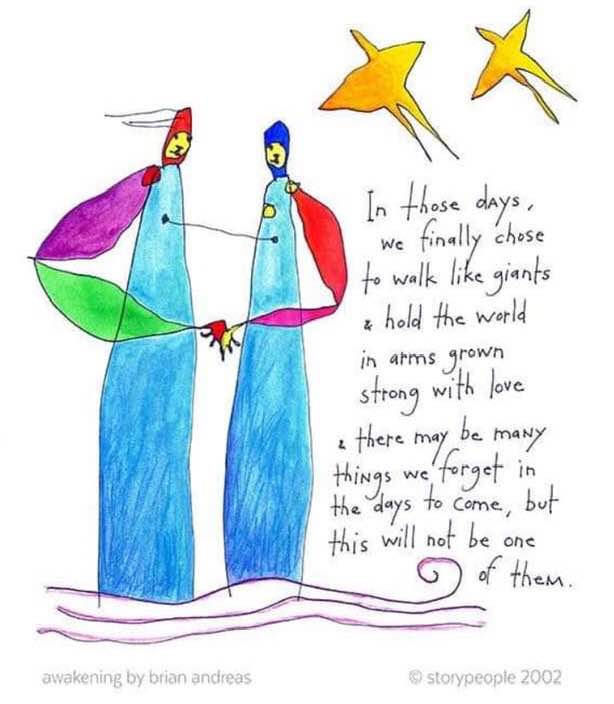 In those days,
we finally chose
to walk like giants
& hold the world
in arms grown
strong with love
& there may be many
things we forget in
the days to come, but
this will not be one
of them.
awakening by brian andreas
© storypeople 2002